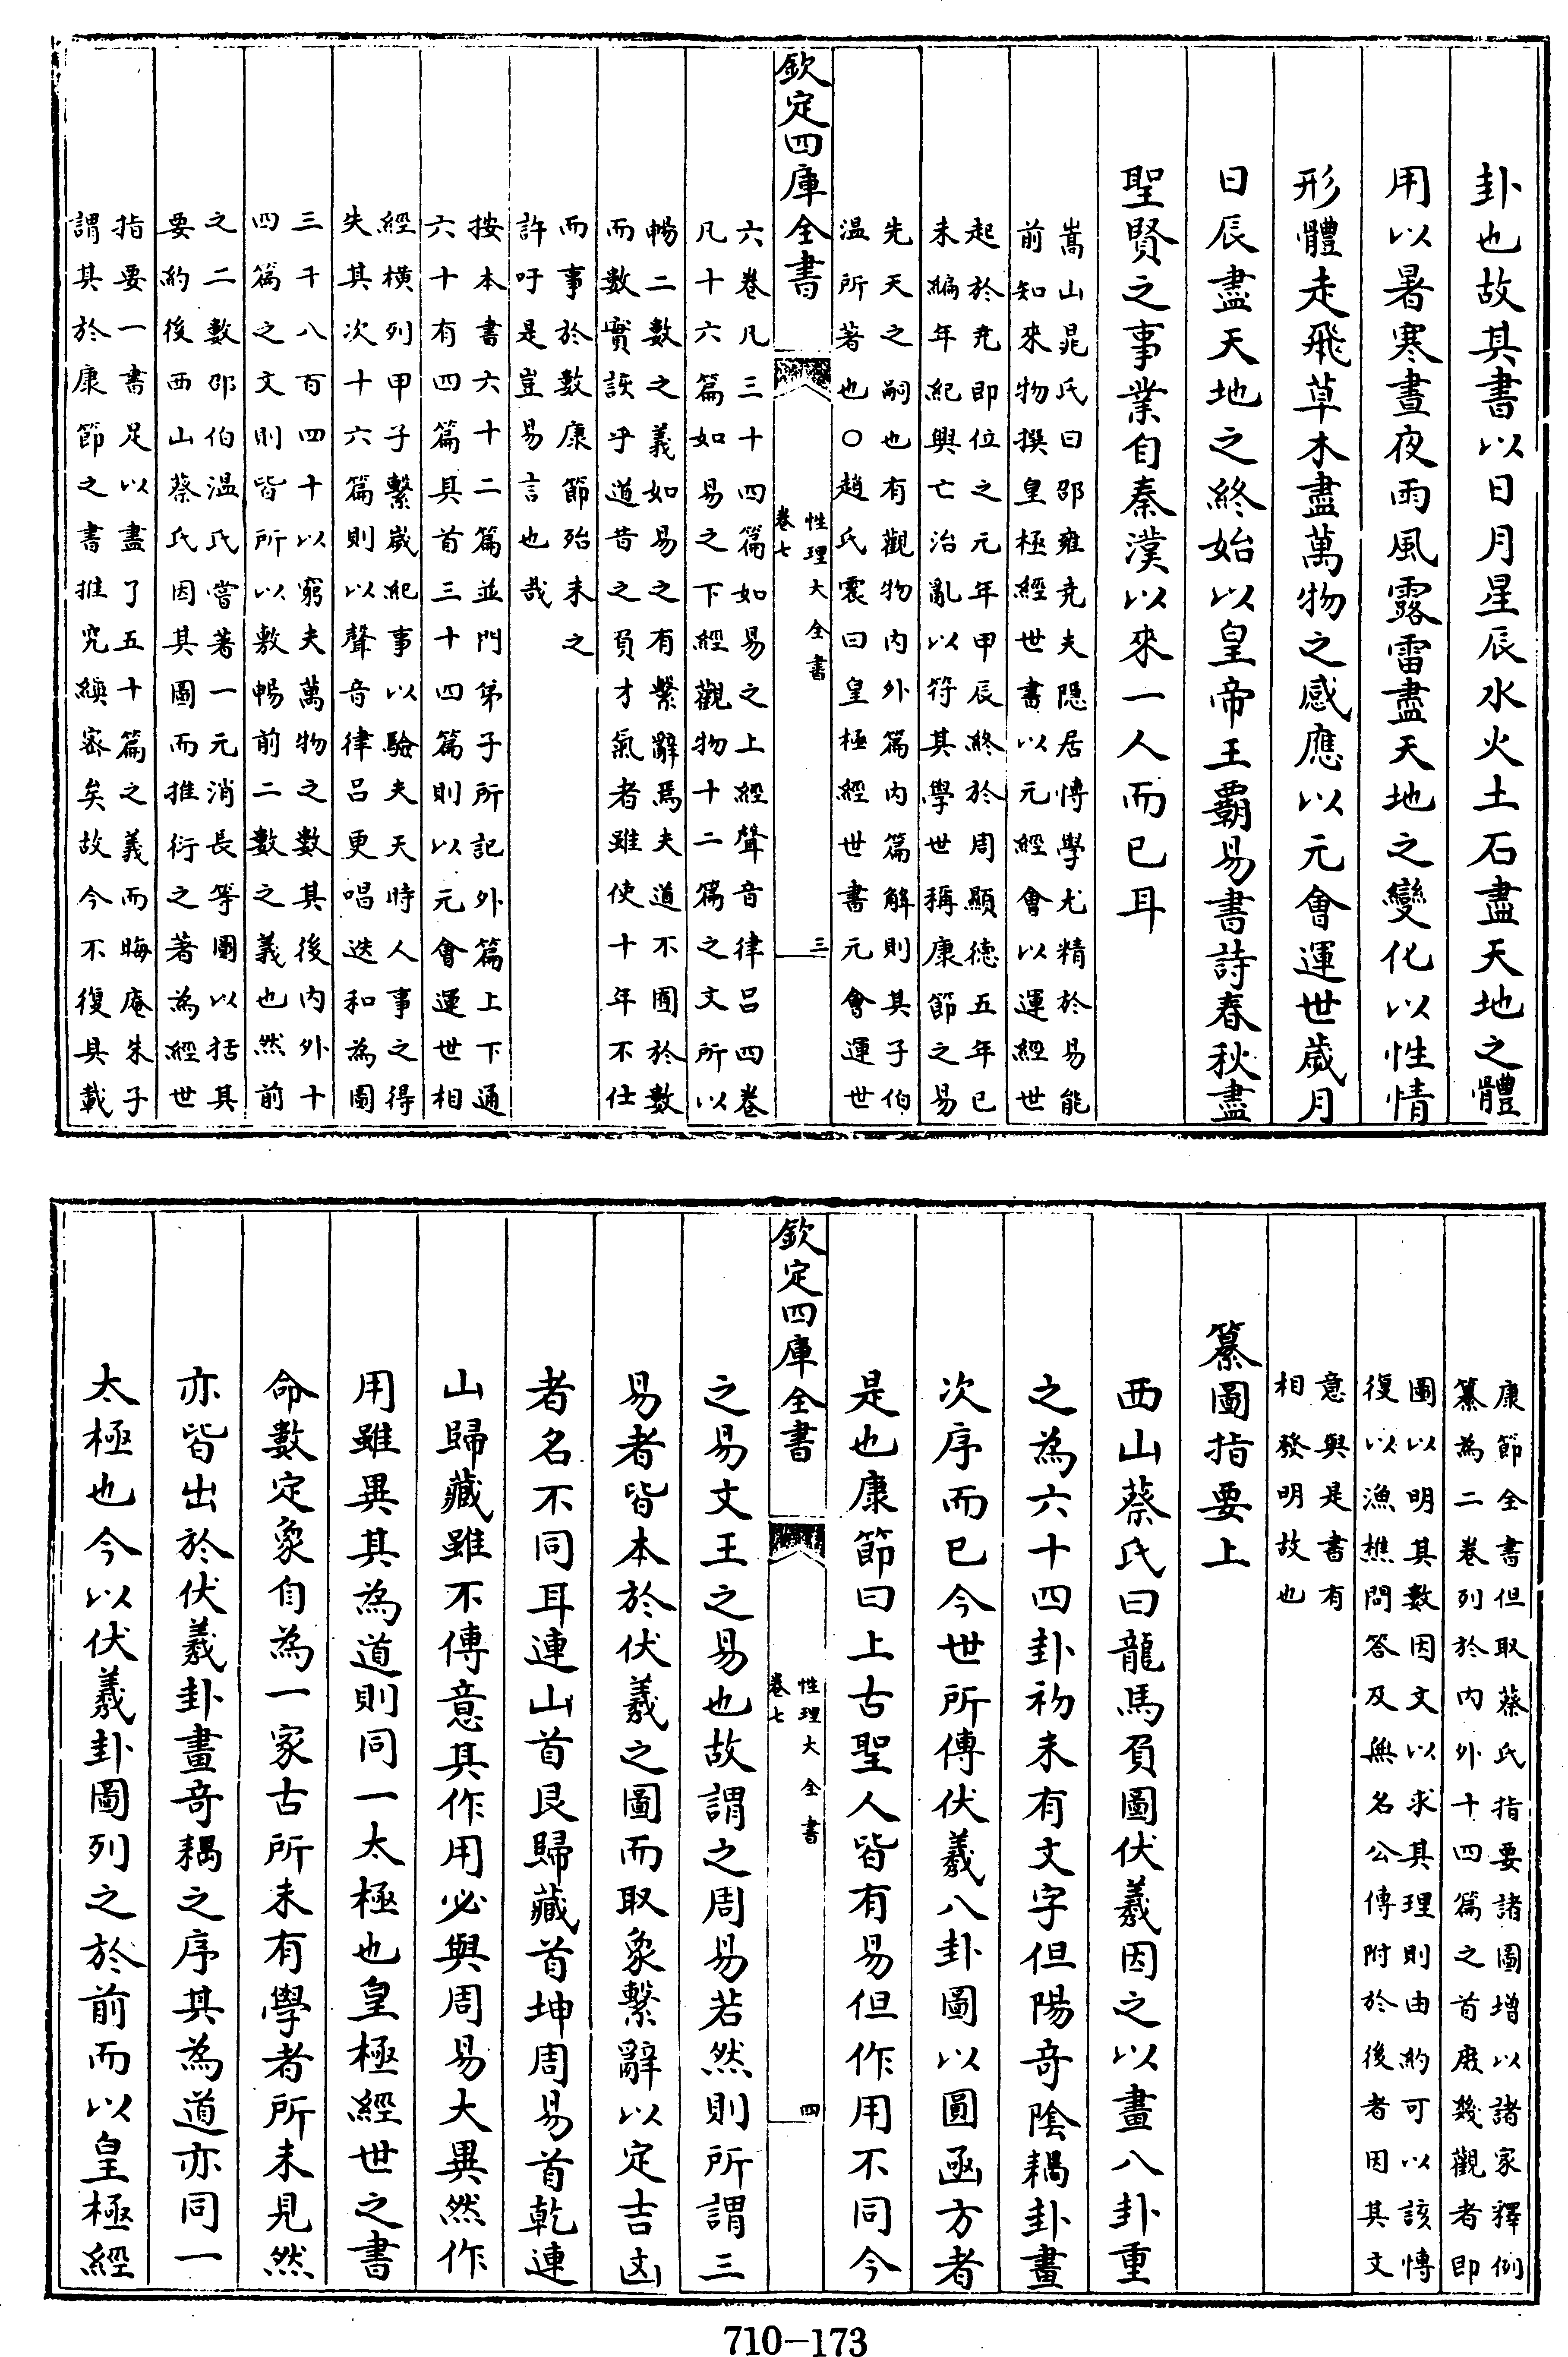 卦也故其書以日月星辰水火土石盡天地之體
用以暑寒晝夜雨風露雷盡天地之變化以性情
形體走飛草木盡萬物之感應以元會運世歲月
日辰盡天地之終始以皇帝王霸易書詩春秋盡
聖賢之事業自秦漢以來一人而已耳
嵩山晁氏曰邵雍堯夫隱居博學尤精於易能
前知來物撰皇極經世書以元經會以運經世
起於堯即位之元年甲辰終於周顯德五年已
未編年紀興亡治亂以符其學世稱康節之易
先天之嗣也有觀物內外篇內篇解則其子伯
溫所著也○趙氏震曰皇極經世書元會運世
欽定四庫全書
性理大全書
卷七
三
六卷凡三十四篇如易之上經聲音律呂四卷
凡十六篇如易之下經觀物十二篇之文所以
暢二數之義如易之有繫辭焉夫道不囿於數
而數實誘乎道昔之負才氣者雖使十年不仕
而事於數康節殆未之
許吁是豈易言也哉
按本書六十二篇並門弟子所記外篇上下通
六十有四篇其首三十四篇則以元會運世相
經橫列甲子繫歲紀事以驗夫天時人事之得
失其次十六篇則以聲音律呂更唱迭和為圖
三千八百四十以窮夫萬物之數其後內外十
四篇之文則皆所以敷暢前二數之義也然前
之二數邵伯溫氏嘗著一元消長等圖以括其
要約後西山蔡氏因其圖而推衍之著為經世
指要一書足以盡了五十篇之義而晦庵朱子
謂其於康節之書推究縝密矣故今不復具載
康節全書但取蔡氏指要諸圖增以諸家釋例
纂為二卷列於內外十四篇之首庶幾觀者即
圖以明其數因文以求其理則由約可以該博
復以漁樵問答及無名公傳附於後者因其文
意與是書有
相發明故也
纂圖指要上
西山蔡氏曰龍馬負圖伏羲因之以畫八卦重
之為六十四卦初未有文字但陽奇陰耦卦畫
次序而已今世所傳伏羲八卦圖以圓函方者
是也康節曰上古聖人皆有易但作用不同今
欽定四庫全書
性理大全書
卷七
四
之易文王之易也故謂之周易若然則所謂三
易者皆本於伏羲之圖而取象繫辭以定吉凶
者名不同耳連山首艮歸藏首坤周易首乾連
山歸藏雖不傳意其作用必與周易大異然作
用雖異其為道則同一太極也皇極經世之書
命數定象自為一家古所未有學者所未見然
亦皆出於伏羲卦畫奇耦之序其為道亦同一
太極也今以伏羲卦圖列之於前而以皇極經
710-173